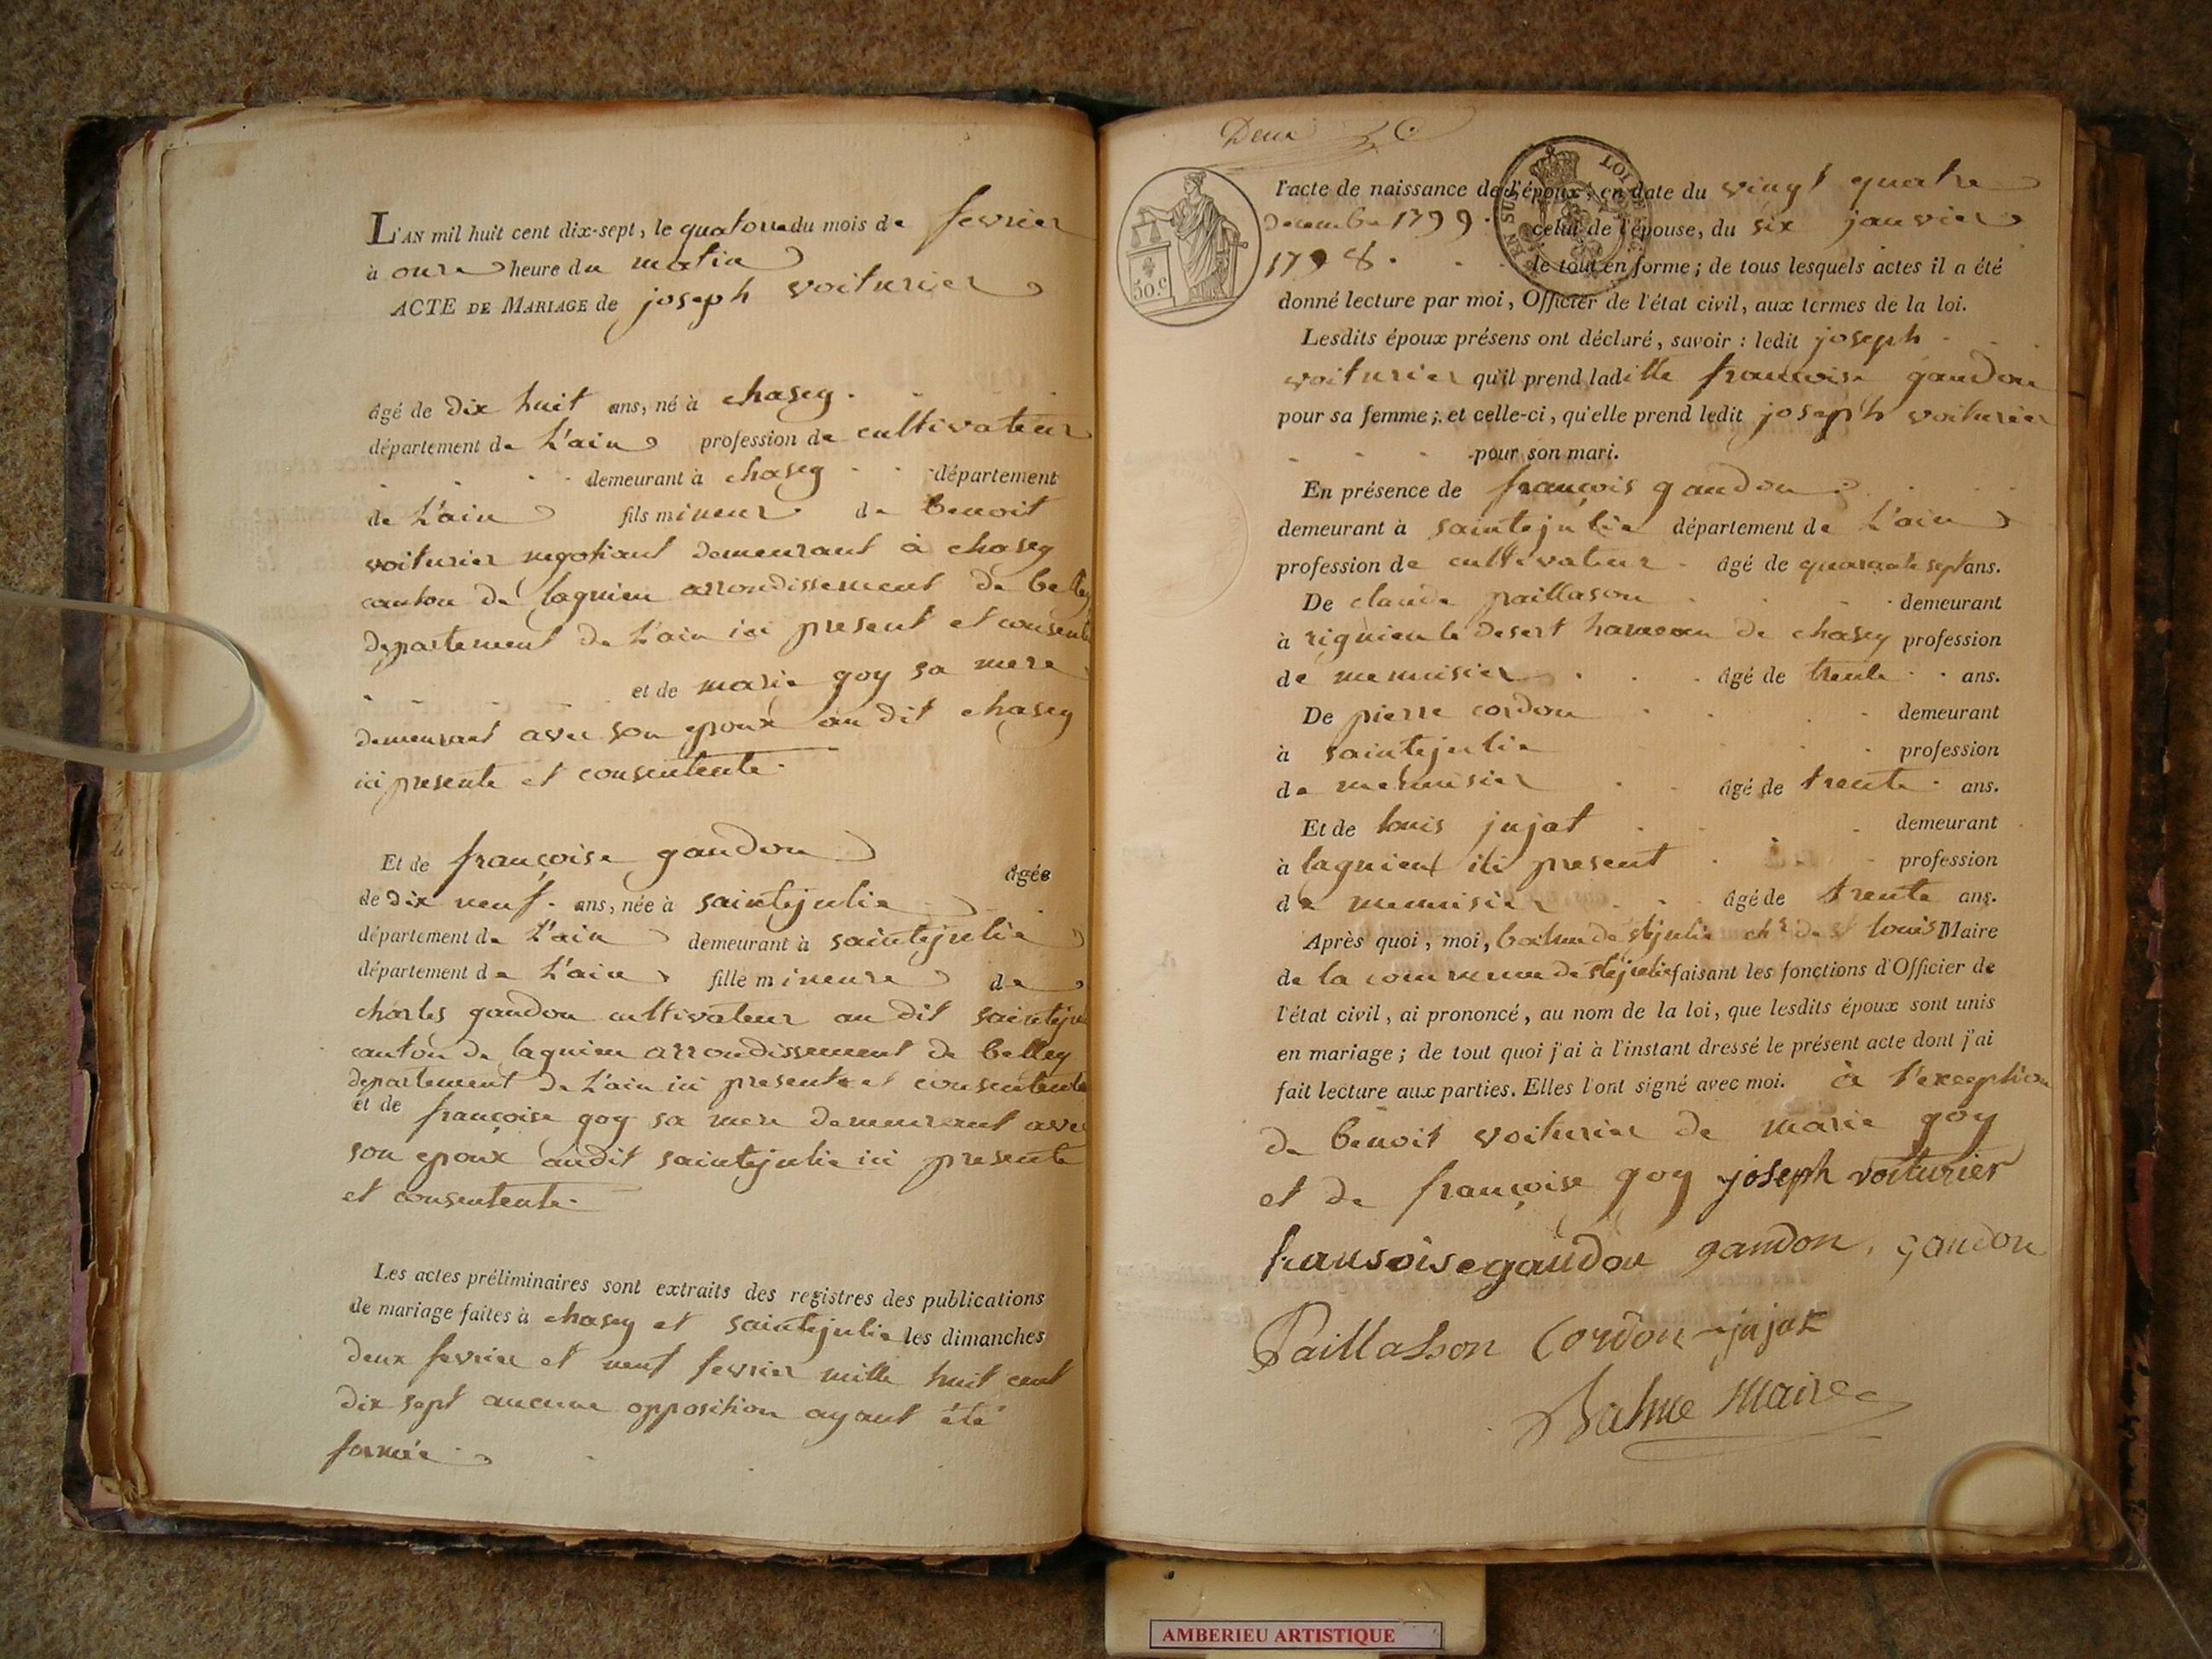 L'AN mil huit cent dix-sept, le quatorze du mois de fevrier
à onze heure du matin
ACTE DE MARIAGE de joseph voiturier
âgé de dix huit ans, né à chasey
département de L'ain profession de cultivateur
demeurant à chasey département
de L'ain fils mineur de benoit
voiturier negotiant demeurant à chasey
canton de lagnieu arrondissement de belley
departement de L'ain ici present et consent
et de marie goy sa mere
demeurant avec son epoux au dit chasey
ici presente et consentente
Et de françoise gaudon âgée
de dix neuf ans, née à saintejulie
département de L'ain demeurant à saintejulie
département de L'ain fille mineure de
charles gaudon cultivateur au dit sainteju
canton de lagnieu arrondissement de belley
departement de L'ain ici present et consentente
et de françoise goy sa mere demeurant avec
son epoux audit saintejulie ici presente
et consentente
Les actes préliminaires sont extraits des registres des publications
de mariage faites à chasey et saintejulie les dimanches
deux fevrier et neuf fevrier mille huit cent
dix sept aucune opposition ayant été
formée
Deux
l'acte de naissance de l'époux, en date du vingt quatre
decembre 1799 celui de l'épouse, du six janvier
1798 le tout en forme; de tous lesquels actes il a été
donné lecture par moi, Officier de l'état civil, aux termes de la loi.
50.c
LOI
EN SUS
Lesdits époux présens ont déclaré, savoir : ledit joseph
voiturier qu'il prend laditte françoise gaudon
pour sa femme; et celle-ci, qu'elle prend ledit joseph voiturier
pour son mari.
En présence de françois gaudon
demeurant à saintejulie département de L'ain
profession de cultivateur âgé de quarante sept ans.
De claude paillason demeurant
à rignieu le desert hameau de chasey profession
de menuisier âgé de trente ans.
De pierre cordon demeurant
à saintejulie profession
de menuisier âgé de trente ans.
Et de louis jujat demeurant
à lagnieu ici present profession
de menuisier âgé de trente ans.
Après quoi, moi, de stejulie chr de st louis Maire
de la commune de stejulie faisant les fonctions d'Officier de
l'état civil, ai prononcé, au nom de la loi, que lesdits époux sont unis
en mariage; de tout quoi j'ai à l'instant dressé le présent acte dont j'ai
fait lecture aux parties. Elles l'ont signé avec moi. à l'exception
de benoit voiturier de marie goy
et de françoise goy joseph voiturier
fransoisegaudon gaudon, gaudon
Paillasson Cordon jujat
Balme Maire
AMBERIEU ARTISTIQUE